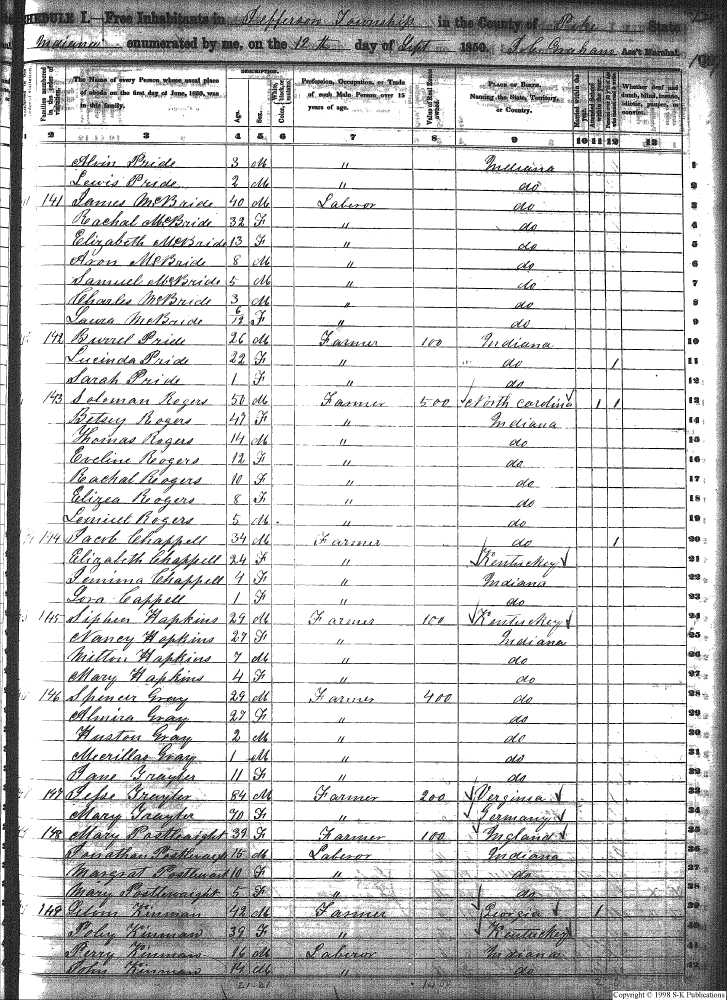 SCHEDULE I.—Free Inhabitants in Jefferson Township in the County of Pike State
Indiana enumerated by me, on the 12th day of Sept 1850. Ass't Marshal.
Families numbered in the order of visitation.
The Name of every Person whose usual place of abode on the first day of June, 1850, was in this family.
DESCRIPTION.
Age.
Sex.
Color, White, black, or mulatto.
Profession, Occupation, or Trade of each Male Person over 15 years of age.
Value of Real Estate owned.
PLACE OF BIRTH, Naming the State, Territory, or Country.
Married within the year.
Whether deaf and dumb, blind, insane, idiotic, pauper, or convict.
2 3 4 5 6 7 8 9 10 11 12 13
Alvin Pride 3 M " Indiana 1
Lewis Pride 2 M " do 2
141 James McBride 40 M Laberor do 3
Rachal McBride 32 F " do 4
Elizabeth McBride 13 F " do 5
Aron McBride 8 M " do 6
Samuel McBride 5 M " do 7
Charles McBride 3 M " do 8
Laura McBride 6/12 F " do 9
142 Burrel Pride 26 M Farmer 100 Indiana 10
Lucinda Pride 22 F " do 1 11
Sarah Pride 1 F " do 12
143 Soloman Rogers 50 M Farmer 500 North Carolina 1 1 13
Betsey Rogers 47 F " Indiana 14
Thomas Rogers 14 M " do 15
Eveline Rogers 12 F " do 16
Rachal Rogers 10 F " do 17
Elizea Rogers 8 F " do 18
Lemuel Rogers 5 M " do 19
144 Jacob Chappell 34 M Farmer do 1 20
Elizabeth Chappell 24 F " Kentuckey 21
Jemima Chappell 4 F " Indiana 22
Cappell 1 F " do 23
145 Stphen Hapkins 29 M Farmer 100 Kentuckey 24
Nancy Hopkins 27 F " Indiana 25
Milton Hapkins 7 M " do 26
Mary Hapkins 4 F " do 27
146 Spencer Gray 29 M Farmer 400 do 28
Almira Gray 27 F " do 29
Huston Gray 2 M " do 30
Gray 1 M " do 31
Jane Grayter 11 F " do 32
147 Grayter 84 M Farmer 200 Virginia 33
Mary Grayter 70 F " Germany 34
148 Mary Postlewaight 39 F Farmer 100 England 35
Jonathan 15 M Laberor Indiana 36
Margrat 10 F " do 37
Mary Postlewaight 5 F " do 38
149 Kinman 42 M Farmer Georgia 1 39
Poley Kinman 39 F " Kentuckey 40
Perry Kinman 16 M Laberor Indiana 41
John Kinman 14 M " do 42
Copyright © 1998 S-K Publications